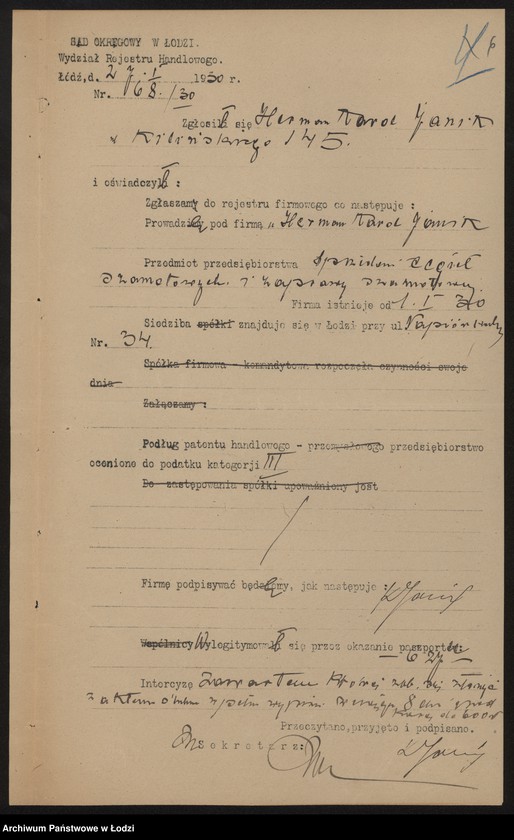 SĄD OKRĘGOWY W ŁODZI.
Wydział Rejestru Handlowego.
Łódź,d. 27.I 1930 r.
Nr. 768/30
Zgłosił się Herman Karol Janik
Kilińskiego 145.
i oświadczył :
Zgłaszam do rejestru firmowego co następuje :
Prowadzę pod firmą „Herman Karol Janik
Przedmiot przedsiębiorstwa sprzedaż cegieł
szamotowych i zaprawy szamotowej.
Firma istnieje od 1.I 30
Siedziba spółki znajduje się w Łodzi przy ul.
Nr. 34
Spółka firmowa - komandytowa rozpoczęła czynności swoje
dnia
Załączamy :
Podług patentu handlowego - przemysłowego przedsiębiorstwo
ocenione do podatku kategorji III
Do zastępowania spółki upoważniony jest
Firmę podpisywać będę, jak następuje :
Wspólnicy Wylegitymował się przez okazanie paszportu
Intercyzę zawartem
z aktem
Przeczytano, przyjęto i podpisano.
Sekretarz: